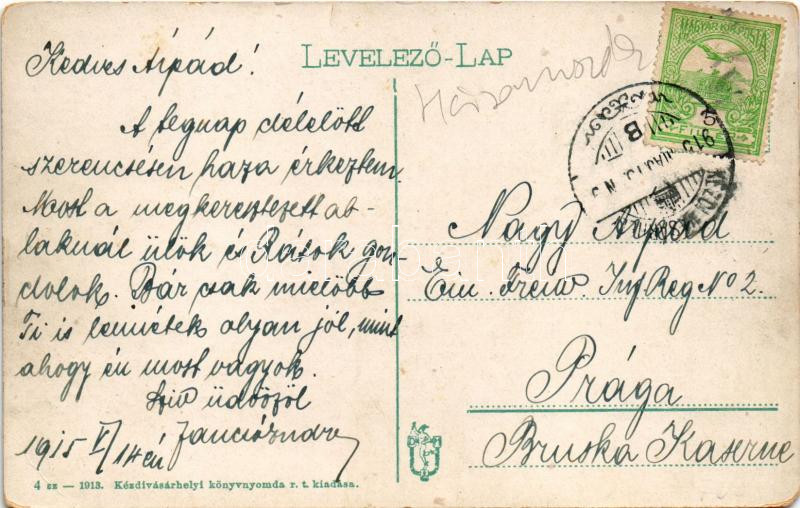 LEVELEZŐ-LAP
MAGYAR KIR. POSTA
FILLÉR
Kedves Árpád!
A tegnap délelőtt
szerencsésen haza érkeztem.
Most a megkeresztezett ab-
laknál ülök és Rátok gon-
dolok. Bár csak mielőbb
Ti is lennétek olyan jól, mint
ahogy én most vagyok.
üdvözöl
1915 V/14 én
Nagy Árpád
Ein. Freiw. Inf Reg No 2.
Prága
Bruska Kaserne
4 sz — 1913. Kézdivásárhelyi könyvnyomda r. t. kiadása.